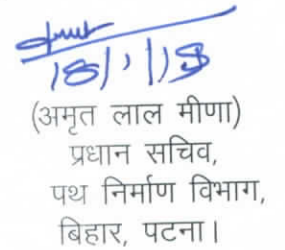 18/1/18
(अमृत लाल मीणा)
प्रधान सचिव,
पथ निर्माण विभाग,
बिहार, पटना।